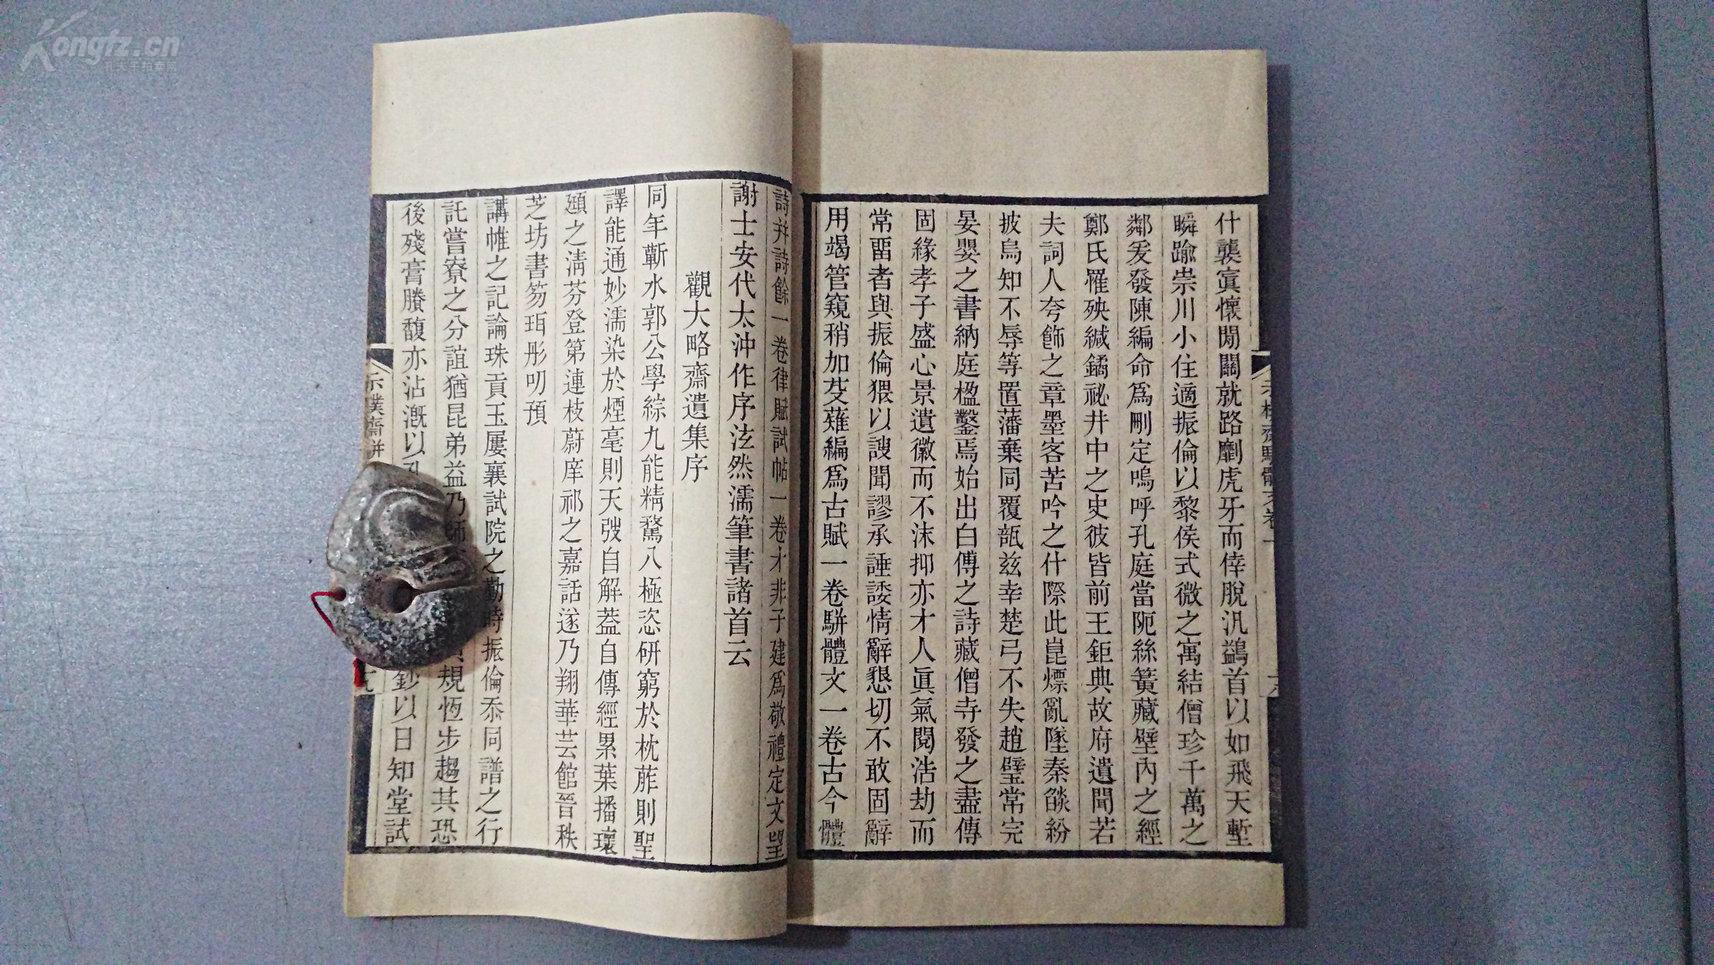 什襲寘懷閒關就路劘虎牙而倖脫汎鷁首以如飛天塹
瞬踰崇川小住適振倫以黎侯式微之寓結僧珍千萬之
鄰爰發陳編命爲刪定嗚呼孔庭當阨絲簧藏壁內之經
鄭氏罹殃緘鐍祕井中之史彼皆前王鉅典故府遺聞若
夫詞人夸飾之章墨客苦吟之什際此崑熛亂墜秦燄紛
披烏知不辱等置藩棄同覆瓿兹幸楚弓不失趙璧常完
晏嬰之書納庭楹鑿焉始出白傅之詩藏僧寺發之盡傳
固緣孝子盛心景遺徽而不沬抑亦才人眞氣閱浩劫而
常畱者與振倫猥以謏聞謬承諈諉情辭懇切不敢固辭
用竭管窺稍加芟薙編爲古賦一卷駢體文一卷古今體
詩并詩餘一卷律賦試帖一卷才非子建爲敬禮定文望
謝士安代太沖作序泫然濡筆書諸首云
觀大略齋遺集序
同年蘄水郭公學綜九能精騖八極恣研窮於枕葄則聖
譯能通妙濡染於煙毫則天弢自解蓋自傳經累葉播瓌
頲之淸芬登第連枝蔚庠祁之嘉話遂乃翔華芸館晉秩
芝坊書笏珥彤叨預
講帷之記論珠貢玉屢襄試院之勤時振倫忝同譜之行
託嘗寮之分誼猶昆弟益乃師 規恆步趨其恐
後殘膏賸馥亦沾漑以 鈔以日知堂試
Kongfz.cn